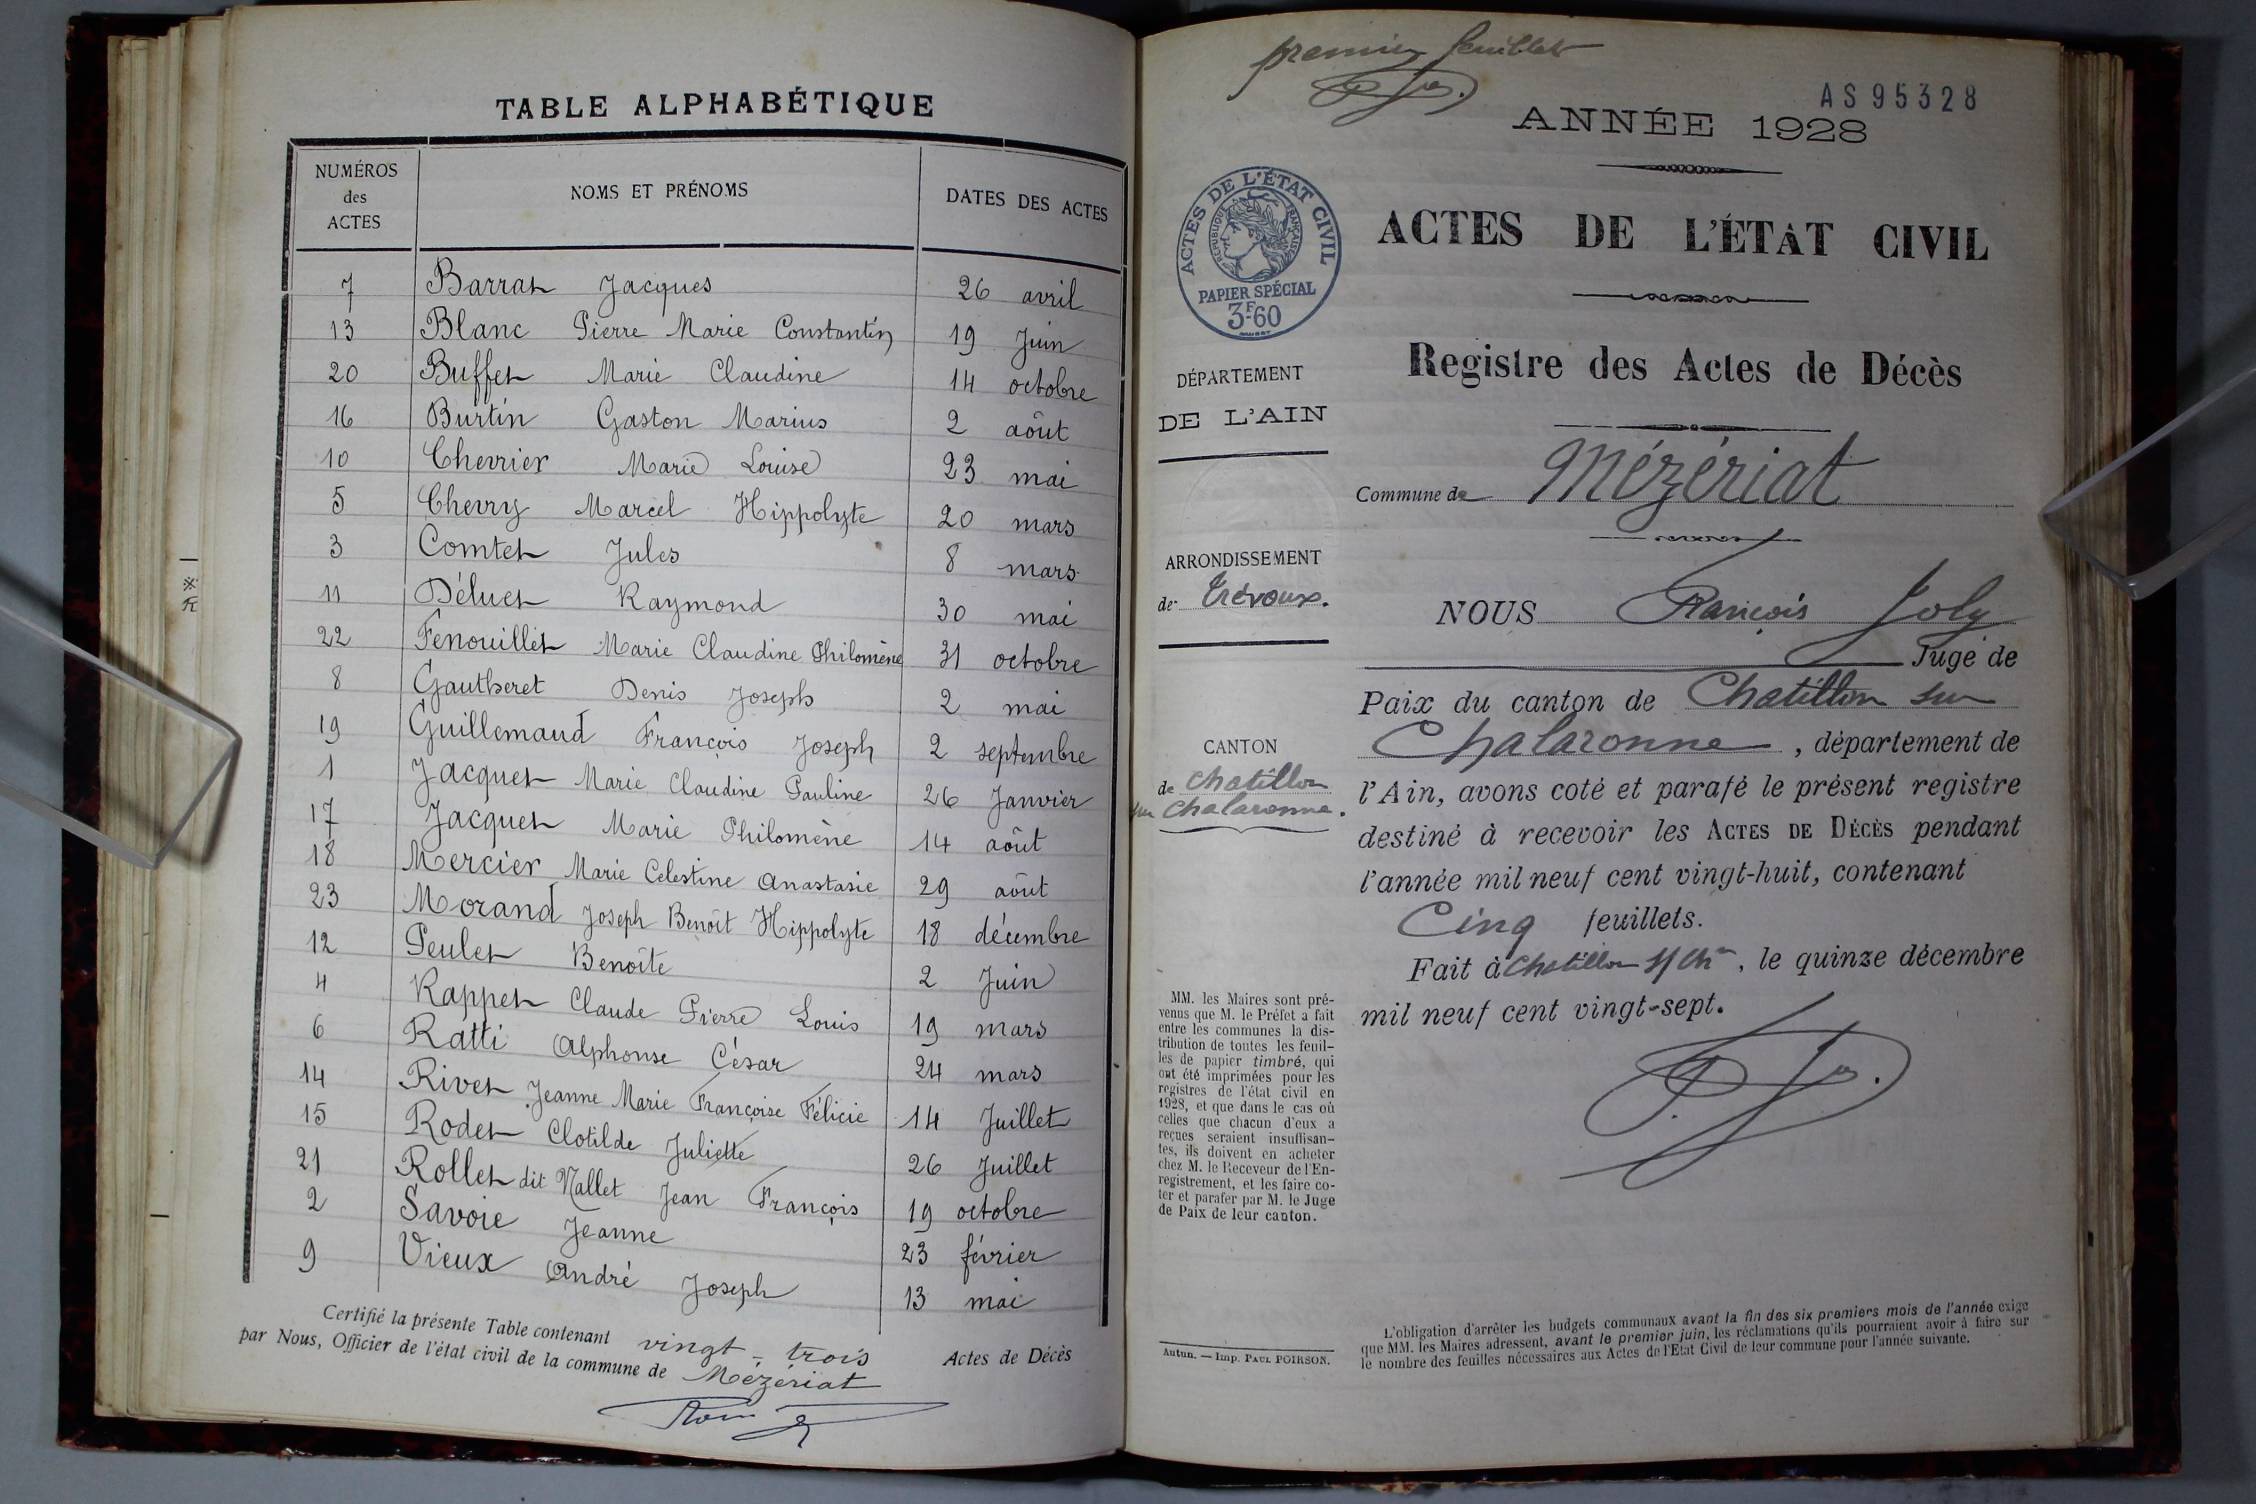 TABLE ALPHABÉTIQUE
NUMÉROS des ACTES NOMS ET PRÉNOMS DATES DES ACTES
7 Barrat Jacques 26 avril
13 Blanc Pierre Marie Constantin 19 Juin
20 Buffet Marie Claudine 14 octobre
16 Burtin Gaston Marius 2 aôut
10 Chevrier Marie Louise 23 mai
5 Chevry Marcel Hippolyte 20 mars
3 Comtet Jules 8 mars
11 Déluet Raymond 30 mai
22 Fenouillet Marie Claudine Philomène 31 octobre
8 Gautheret Denis Joseph 2 mai
19 Guillemaud François Joseph 2 septembre
1 Jacquet Marie Claudine Pauline 26 Janvier
17 Jacquet Marie Philomène 14 aôut
18 Mercier Marie Celestine Anastasie 29 aôut
23 Morand Joseph Benoît Hippolyte 18 décembre
12 Peulet Benoîte 2 Juin
4 Rappet Claude Pierre Louis 19 mars
6 Ratti Alphonse César 24 mars
14 Rivet Jeanne Marie Françoise Félicie 14 Juillet
15 Rodet Clotilde Juliette 26 Juillet
21 Rollet dit Mallet Jean François 19 octobre
2 Savoie Jeanne 23 février
9 Vieux André Joseph 13 mai
Certifié la présente Table contenant vingt-trois Actes de Décès
par Nous, Officier de l'état civil de la commune de Mézériat
premier feuillet
AS95328
ANNÉE 1928
ACTES DE L'ÉTAT CIVIL
RÉPUBLIQUE FRANÇAISE
PAPIER SPÉCIAL
3F.60
ACTES DE L'ÉTAT CIVIL
Registre des Actes de Décès
DÉPARTEMENT
DE L'AIN
Commune de Mézériat
ARRONDISSEMENT
de Trévoux.
NOUS François Joly
Juge de
Paix du canton de Chatillon sur
Chalaronne, département de
l'Ain, avons coté et parafé le présent registre
destiné à recevoir les ACTES DE DÉCÈS pendant
l'année mil neuf cent vingt-huit, contenant
Cinq feuillets.
Fait à Chatillon s/ Chne, le quinze décembre
mil neuf cent vingt-sept.
CANTON
de Chatillon
sur Chalaronne.
MM. les Maires sont pré-
venus que M. le Préfet a fait
entre les communes la dis-
tribution de toutes les feuil-
les de papier timbré, qui
ont été imprimées pour les
registres de l'état civil en
1928, et que dans le cas où
celles que chacun d'eux a
reçues seraient insuffisan-
tes, ils doivent en acheter
chez M. le Receveur de l'En-
registrement, et les faire co-
ter et parafer par M. le Juge
de Paix de leur canton.
Autun. — Imp. PAUL POIRSON.
L'obligation d'arrêter les budgets communaux avant la fin des six premiers mois de l'année exige
que MM. les Maires adressent, avant le premier juin, les réclamations qu'ils pourraient avoir à faire sur
le nombre des feuilles nécessaires aux Actes de l'Etat Civil de leur commune pour l'année suivante.